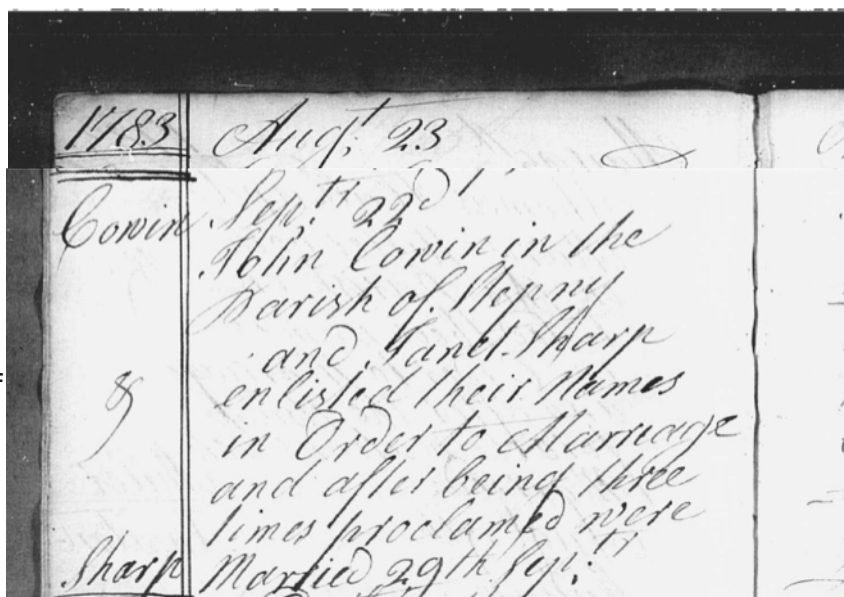 1783 Augt. 23
Cowin Septr. 22d
John Cowin in the
Parish of Stepny
and Janet Sharp
&
enlisted their Names
in Order to Marriage
and after being three
times proclamed were
Sharp Married 29th Septr.